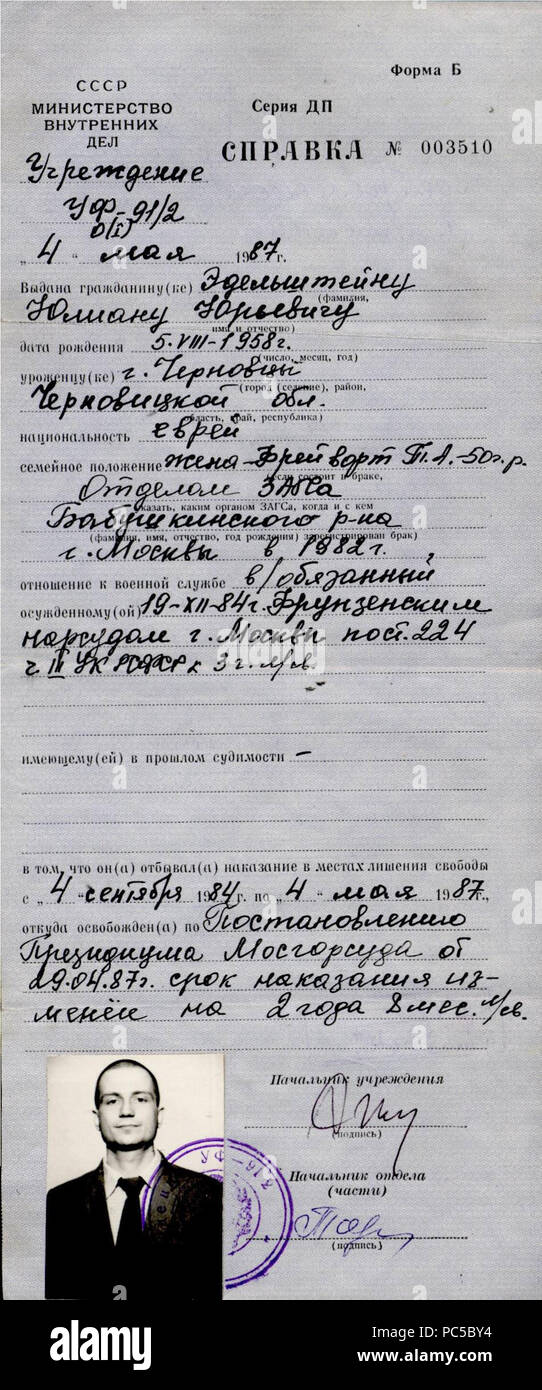 Форма Б
СССР
МИНИСТЕРСТВО
ВНУТРЕННИХ
ДЕЛ
Серия ДП
СПРАВКА № 003510
Учреждение
УФ-91/2
„ 4 “ мая 1987г.
Выдана гражданину(ке) Эдельштейну
(фамилия,
Юлиану Юрьевичу
имя и отчество)
дата рождения 5.VIII-1958г.
(число, месяц, год)
уроженцу(ке) г. Черновцы
(город (селение), район,
Черновицкой обл.
область, край, республика)
национальность еврей
семейное положение жена-Фрейворт Т.А.-50г.р.
(если состоит в браке,
Отделом ЗАГСа
указать, каким органом ЗАГСа, когда и с кем
Бабушкинского р-на
(фамилия, имя, отчество, год рождения) зарегистрирован брак)
г. Москвы в 1982г.,
отношение к военной службе в/обязанный
осужденному(ой) 19-XII-84г. Фрунзенским
нарсудом г. Москвы по ст. 224
ч III УК РСФСР к 3 г. л/св.
имеющему(ей) в прошлом судимости –
в том, что он(а) отбывал(а) наказание в местах лишения свободы
с „ 4 “ сентября 1984г. по „ 4 “ мая 1987г.,
откуда освобожден(а) по Постановлению
Президиума Мосгорсуда от
29.04.87г. срок наказания из-
менён на 2 года 8 мес. л/св.
Начальник учреждения
(подпись)
Начальник отдела
(части)
(подпись)
УФ-91/2
alamy
Image ID: PC5BY4
www.alamy.com